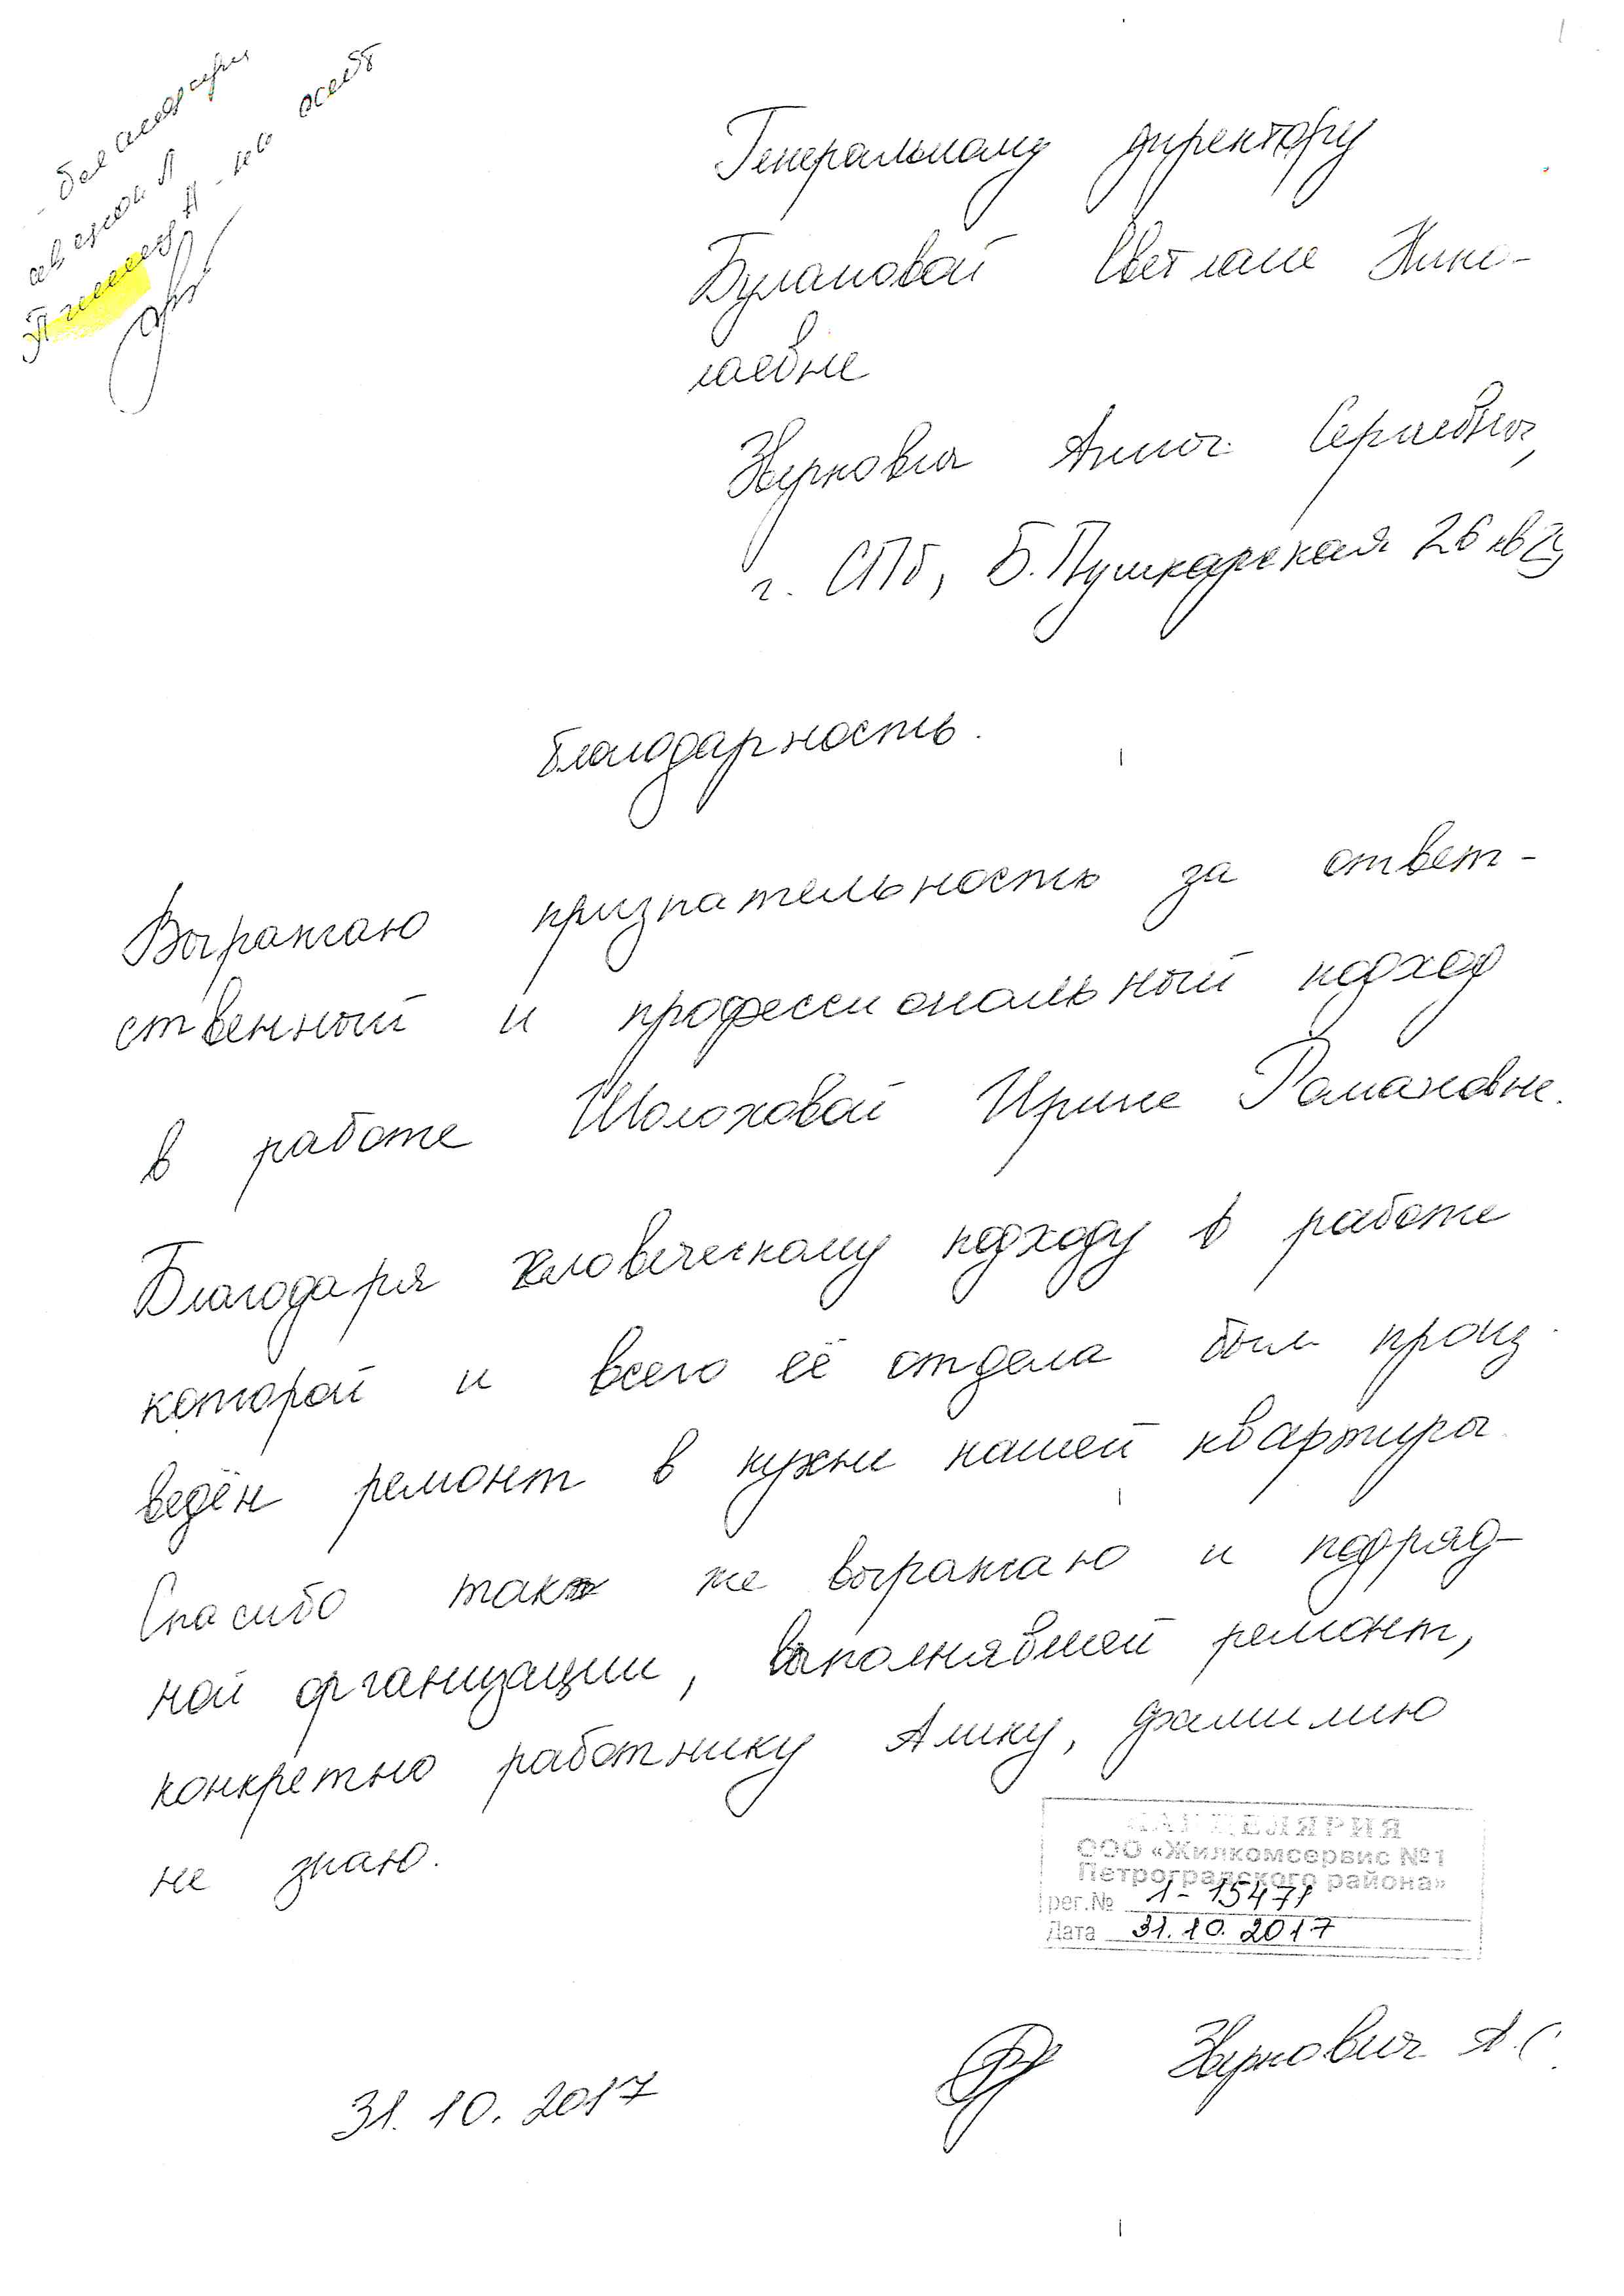 Генеральному директору
Булановой Светлане Нико-
лаевне
Анна Сергаевна,
г. СПб, Б. Пушкарская 26 кв
Благодарность.
Выражаю признательность за ответ-
ственный и профессиональный подход
в работе Шолоховой Ирине Романовне.
Благодаря человеческому подходу в работе
которой и всего её отдела был произ
ведён ремонт в кухни нашей квартиры
Спасибо так же выражаю и подряд-
ной организации, выполнявшей ремонт,
конкретно работнику Алику, фамилию
не знаю.
КАНЦЕЛЯРИЯ
ООО «Жилкомсервис №1
Петроградского района»
рег.№ 1-15471
Дата 31.10.2017
А.С.
31.10.2017